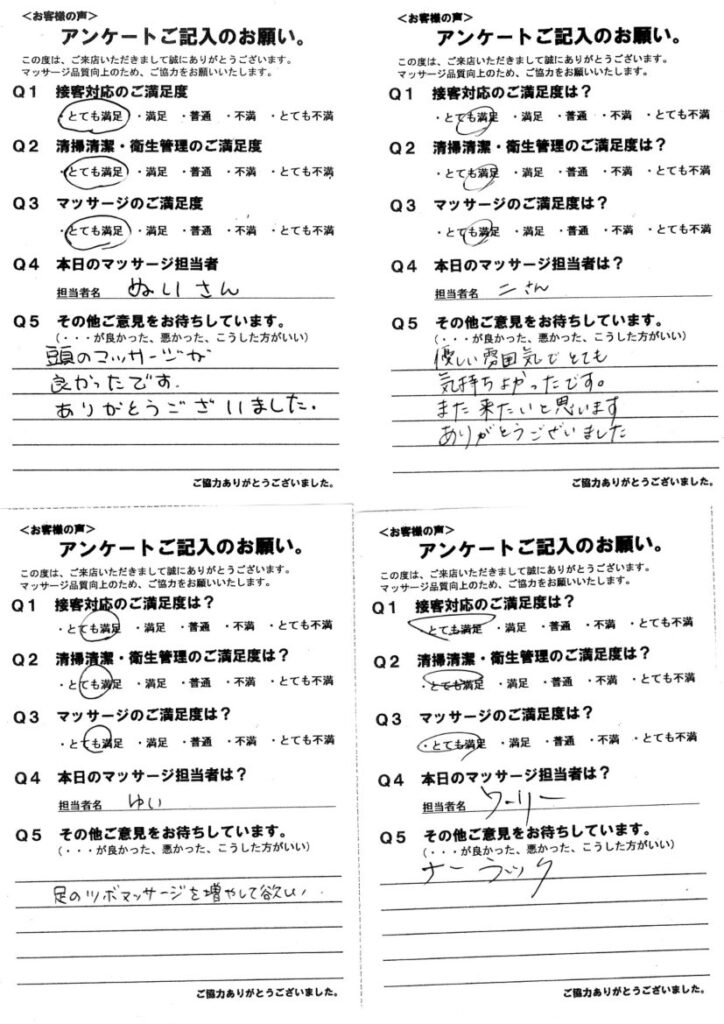 ＜お客様の声＞
アンケートご記入のお願い。
この度は、ご来店いただきまして誠にありがとうございます。
マッサージ品質向上のため、ご協力をお願いいたします。
Q1 接客対応のご満足度
・とても満足 ・満足 ・普通 ・不満 ・とても不満
Q2 清掃清潔・衛生管理のご満足度
・とても満足 ・満足 ・普通 ・不満 ・とても不満
Q3 マッサージのご満足度
・とても満足 ・満足 ・普通 ・不満 ・とても不満
Q4 本日のマッサージ担当者
担当者名 ぬいさん
Q5 その他ご意見をお待ちしています。
（・・・が良かった、悪かった、こうした方がいい）
頭のマッサージが
良かったです.
ありがとうございました.
ご協力ありがとうございました。
＜お客様の声＞
アンケートご記入のお願い。
この度は、ご来店いただきまして誠にありがとうございます。
マッサージ品質向上のため、ご協力をお願いいたします。
Q1 接客対応のご満足度は？
・とても満足 ・満足 ・普通 ・不満 ・とても不満
Q2 清掃清潔・衛生管理のご満足度は？
・とても満足 ・満足 ・普通 ・不満 ・とても不満
Q3 マッサージのご満足度は？
・とても満足 ・満足 ・普通 ・不満 ・とても不満
Q4 本日のマッサージ担当者は？
担当者名 ニさん
Q5 その他ご意見をお待ちしています。
（・・・が良かった、悪かった、こうした方がいい）
優しい雰囲気でとても
気持ちよかったです。
また来たいと思います
ありがとうございました
ご協力ありがとうございました。
＜お客様の声＞
アンケートご記入のお願い。
この度は、ご来店いただきまして誠にありがとうございます。
マッサージ品質向上のため、ご協力をお願いいたします。
Q1 接客対応のご満足度は？
・とても満足 ・満足 ・普通 ・不満 ・とても不満
Q2 清掃清潔・衛生管理のご満足度は？
・とても満足 ・満足 ・普通 ・不満 ・とても不満
Q3 マッサージのご満足度は？
・とても満足 ・満足 ・普通 ・不満 ・とても不満
Q4 本日のマッサージ担当者は？
担当者名 ゆい
Q5 その他ご意見をお待ちしています。
（・・・が良かった、悪かった、こうした方がいい）
足のツボマッサージを増やして欲しい
ご協力ありがとうございました。
＜お客様の声＞
アンケートご記入のお願い。
この度は、ご来店いただきまして誠にありがとうございます。
マッサージ品質向上のため、ご協力をお願いいたします。
Q1 接客対応のご満足度は？
・とても満足 ・満足 ・普通 ・不満 ・とても不満
Q2 清掃清潔・衛生管理のご満足度は？
・とても満足 ・満足 ・普通 ・不満 ・とても不満
Q3 マッサージのご満足度は？
・とても満足 ・満足 ・普通 ・不満 ・とても不満
Q4 本日のマッサージ担当者は？
担当者名 ワーリー
Q5 その他ご意見をお待ちしています。
（・・・が良かった、悪かった、こうした方がいい）
ナーラック
ご協力ありがとうございました。